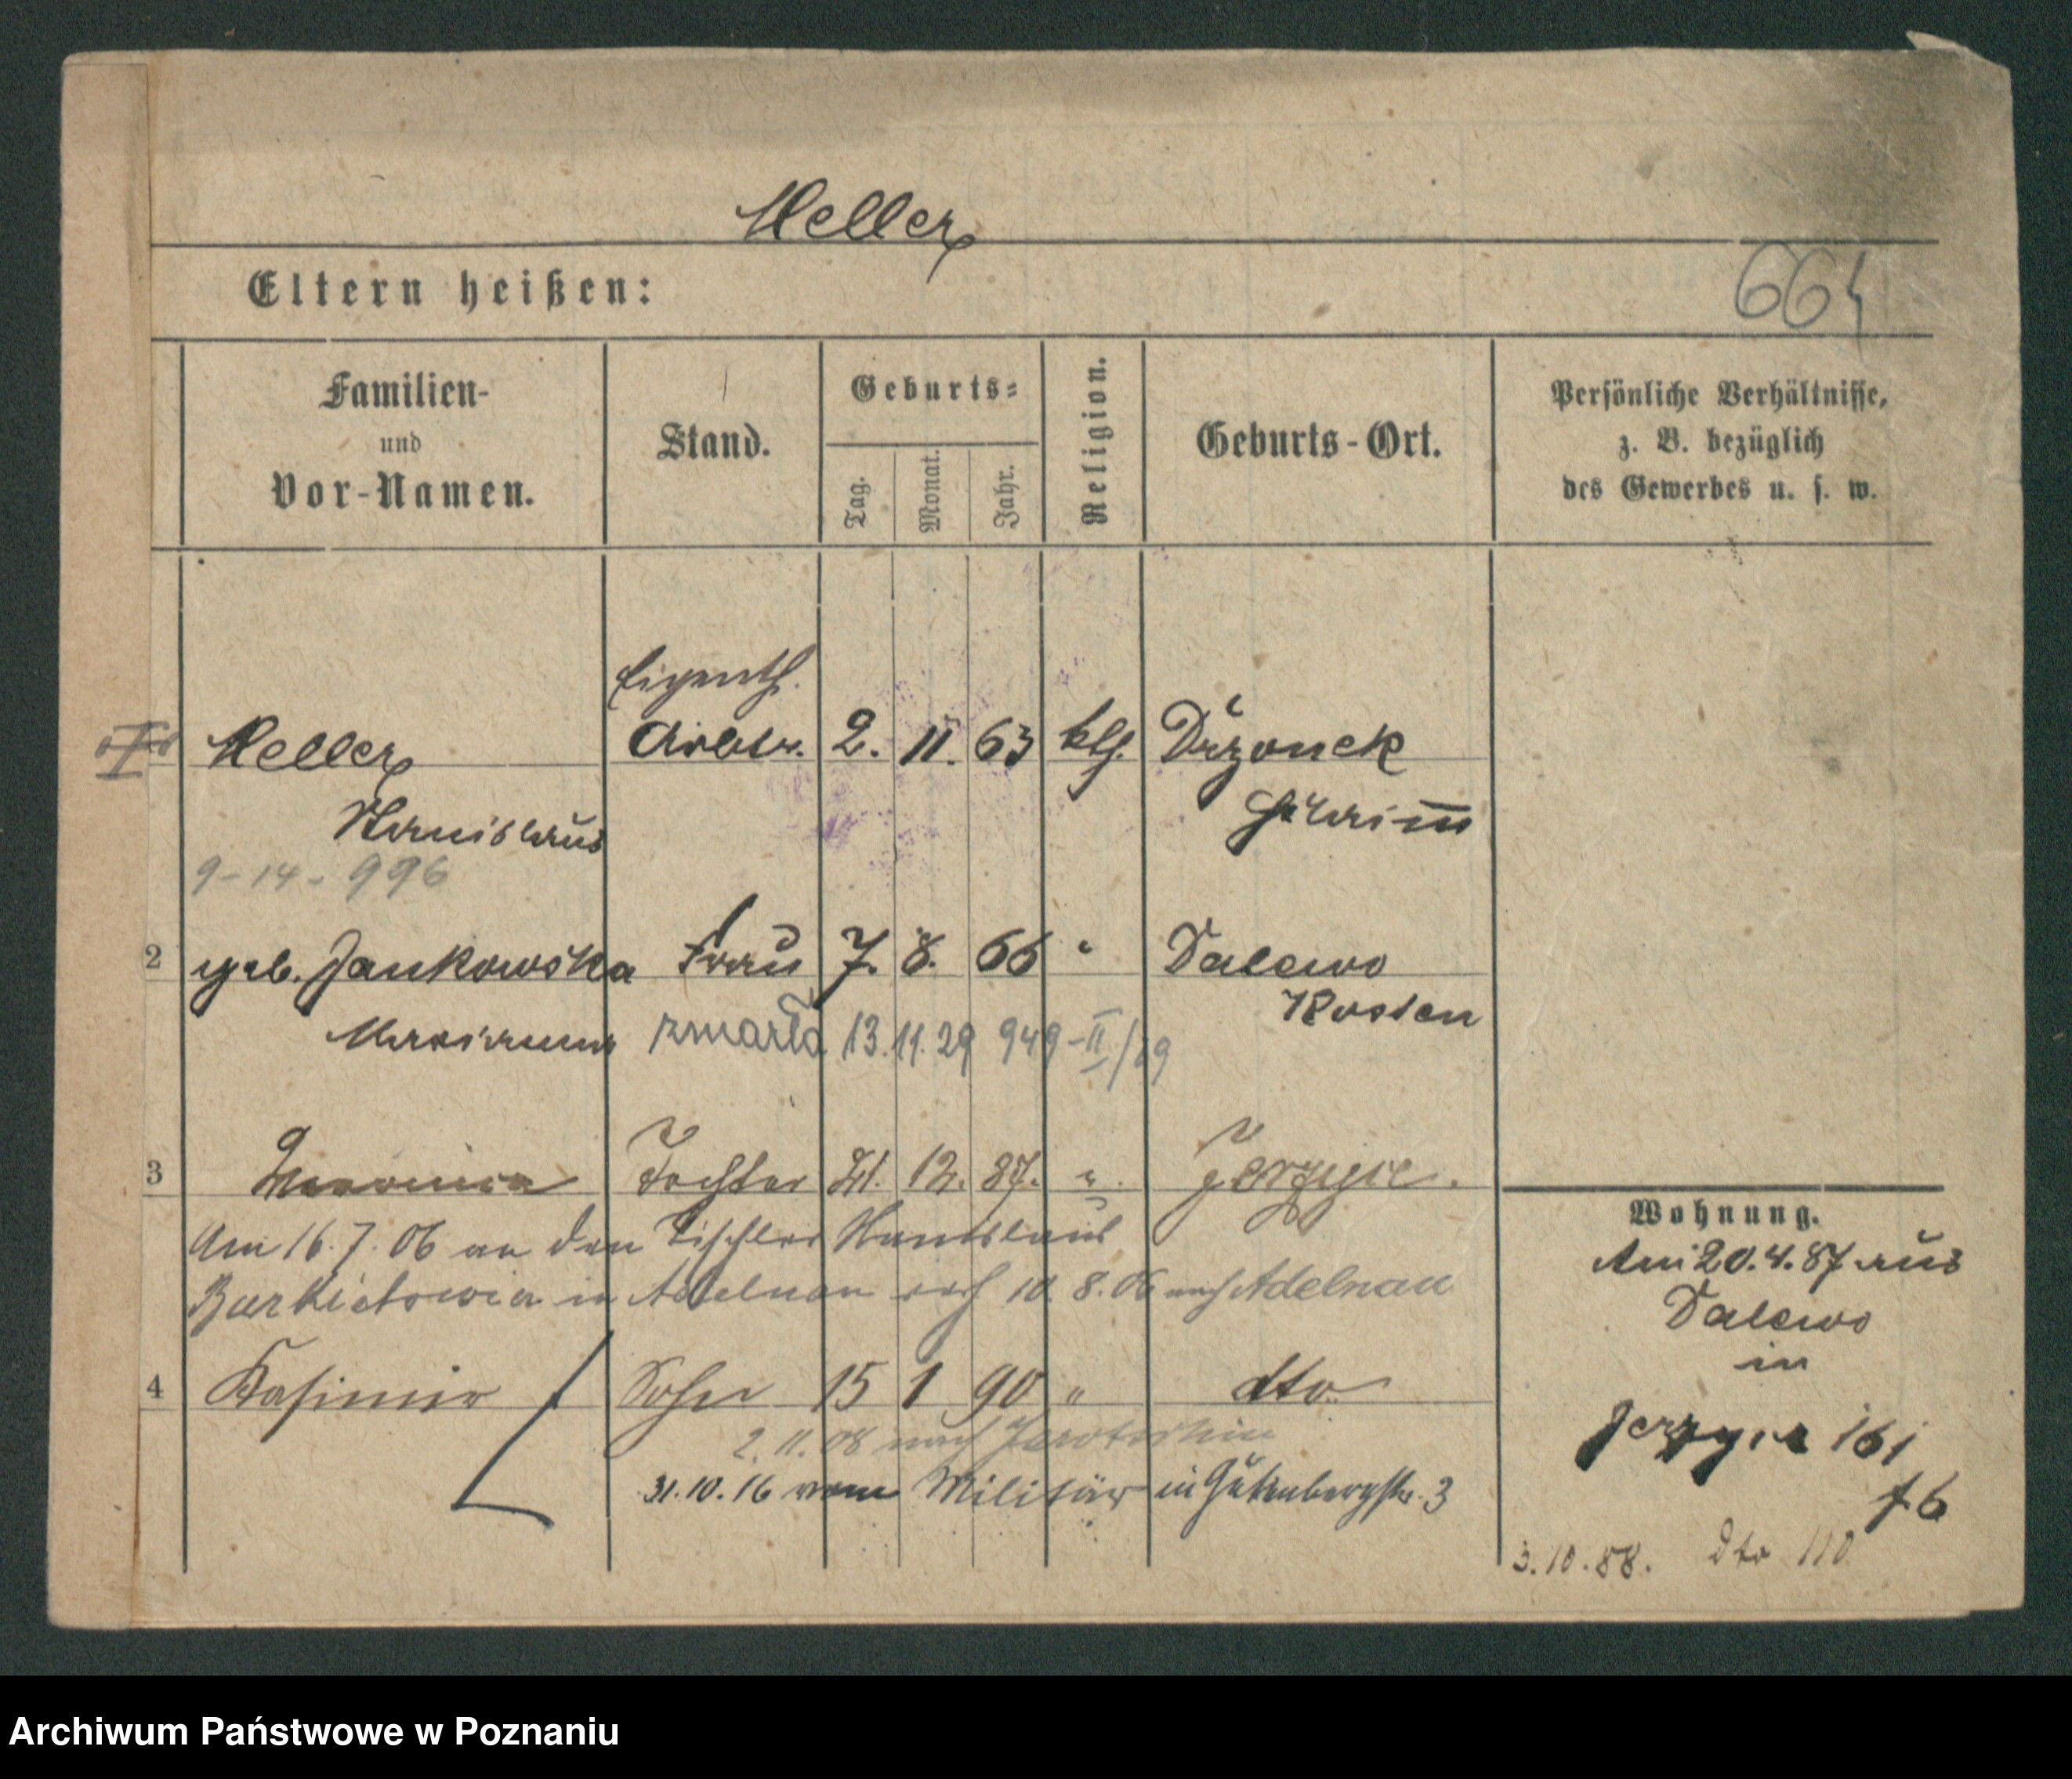 Heller
Eltern heißen:
664
Familien-
und
Vor-Namen.
Stand.
Geburts-
Tag.
Monat.
Jahr.
Religion.
Geburts-Ort.
Persönliche Verhältnisse,
z. B. bezüglich
des Gewerbes u. s. w.
Eigenth.
Heller Arbtr. 2. 11. 63 klh. Drzonek
Stanislaus Schrimm
9-14-996
2 geb. Jankowska Frau 7. 8. 66 " Dalewo
Marianna Kosten
zmarła 13.11.29 949-II/29
3 Tochter 21. 12. 87. " Jerzyce.
Am 16.7.06 an den Tischler Stanislaus
in Adelnau 10.8.06 nach Adelnau
4 Kasimir Sohn 15 1 90 " dto
2.11.08 nach Jarotschin
31.10.16 vom Militär in Gutenbergstr. 3
Wohnung.
Am 20.4.87 aus
Dalewo
in
Jerzyce 161
f. 6
3.10.88. dto 110
Archiwum Państwowe w Poznaniu